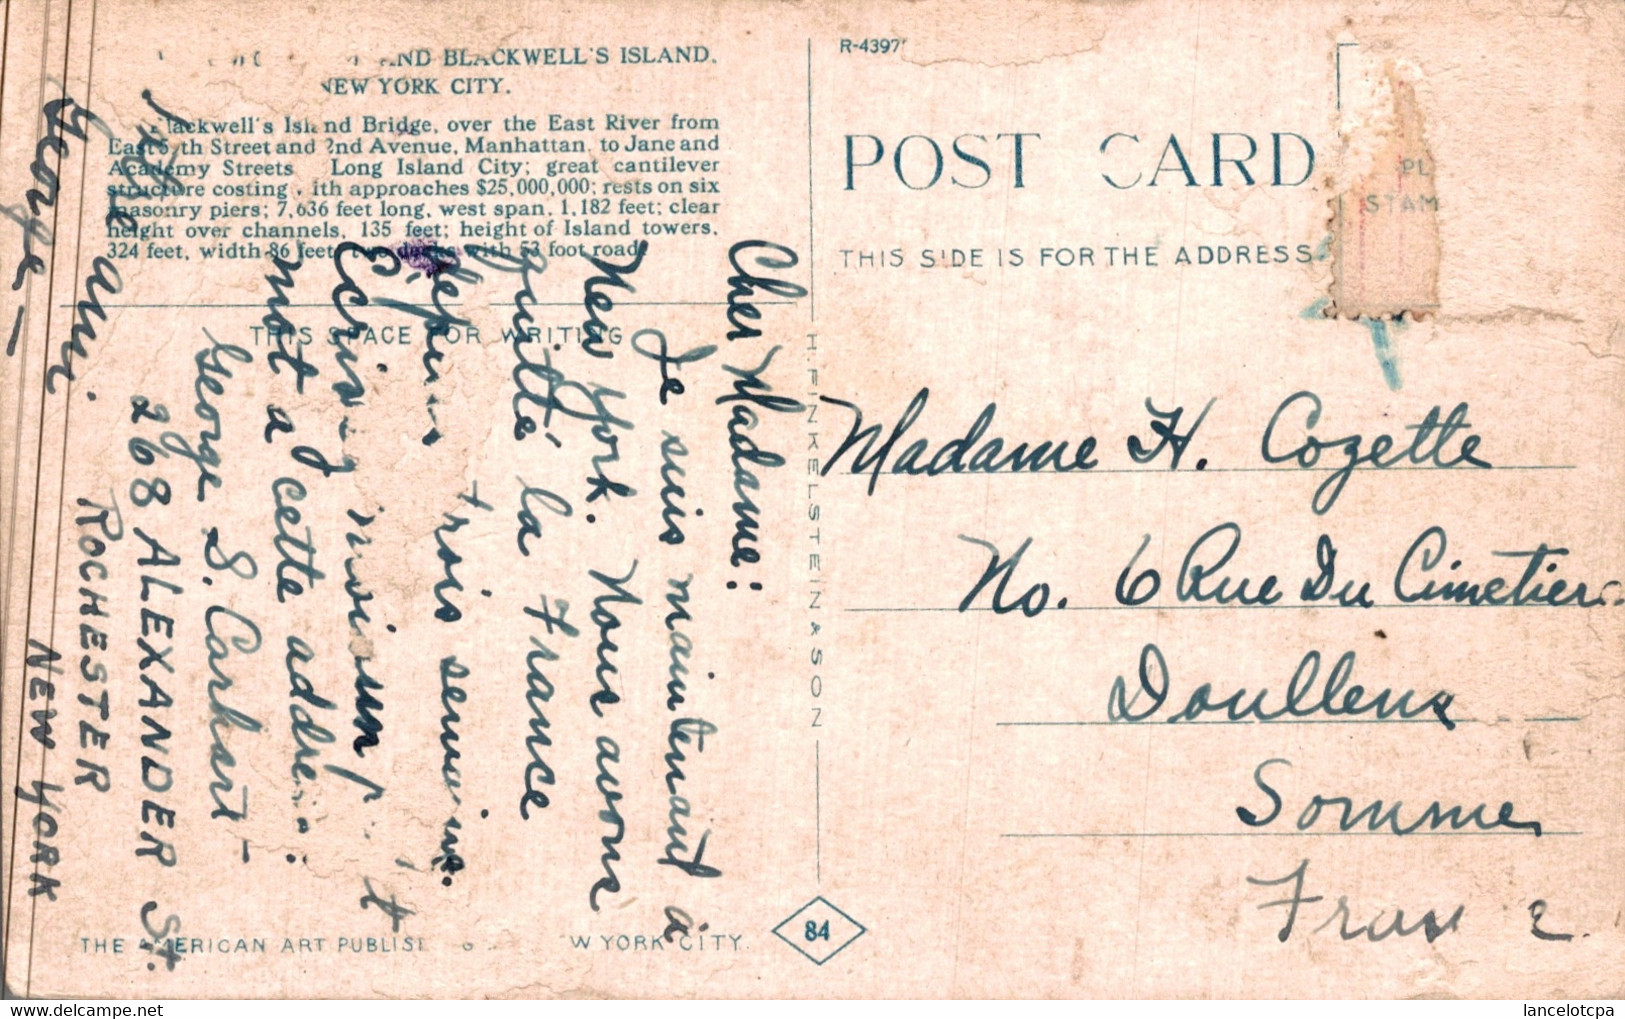 AND BLACKWELL'S ISLAND,
NEW YORK CITY.
Blackwell's Island Bridge, over the East River from
East 5 th Street and 2nd Avenue, Manhattan, to Jane and
Academy Streets Long Island City; great cantilever
structure costing with approaches $25,000,000; rests on six
masonry piers; 7,636 feet long, west span, 1,182 feet; clear
height over channels, 135 feet; height of Island towers,
324 feet, width 86 feet, two decks with 53 foot road
THIS SPACE FOR WRITING
Cher Madame:
Je suis maintenant à
New York. Nous avons
quitté la France
depuis trois semaines.
Ecrivez
mot a cette address:
George S. Carhart—
268 ALEXANDER St.
ROCHESTER
NEW YORK
Votre ami.
George—
THE AMERICAN ART PUBLIS
W YORK CITY.
H. FINKELSTEIN & SON
84
R-4397
POST CARD
THIS SIDE IS FOR THE ADDRESS
PL
STAM
Madame H. Cozette
No. 6 Rue Du Cimetiere
Doullens
Somme
France.
lancelotcpa